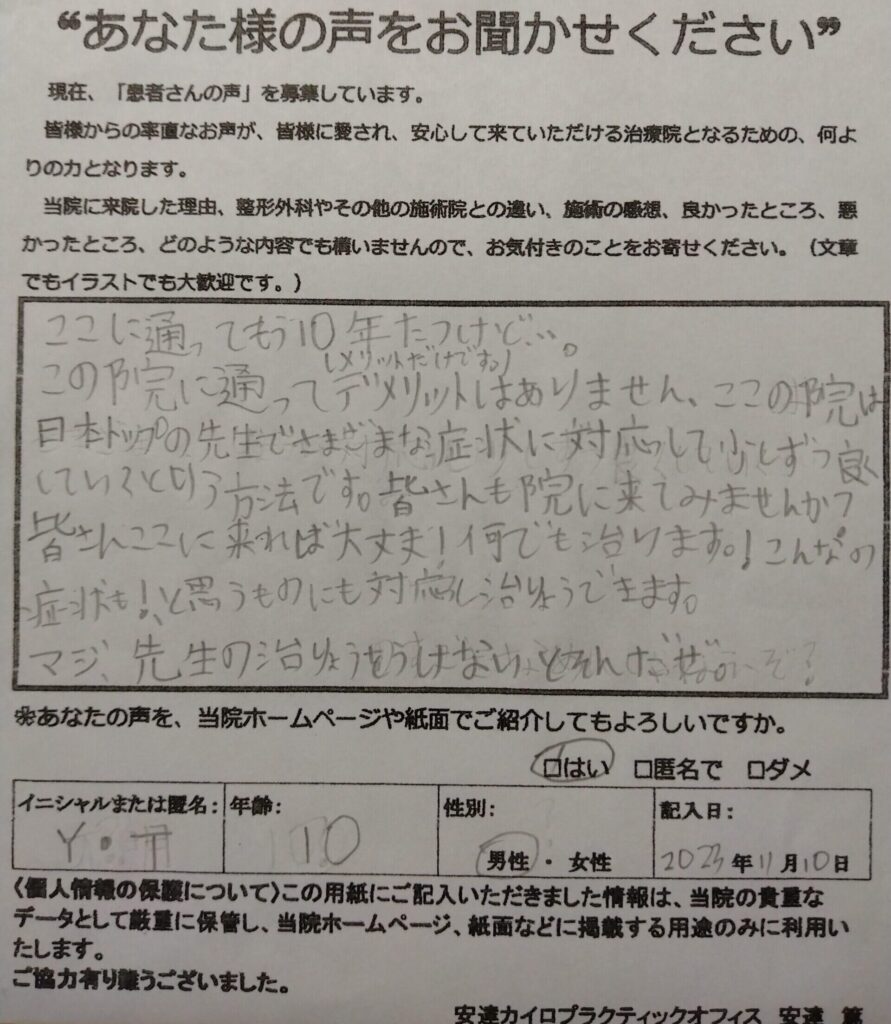 “あなた様の声をお聞かせください”
現在、「患者さんの声」を募集しています。
皆様からの率直なお声が、皆様に愛され、安心して来ていただける治療院となるための、何よ
りの力となります。
当院に来院した理由、整形外科やその他の施術院との違い、施術の感想、良かったところ、悪
かったところ、どのような内容でも構いませんので、お気付きのことをお寄せください。（文章
でもイラストでも大歓迎です。）
ここに通ってもう10年たつけど…。
(メリットだけです。)
この院に通ってデメリットはありません、ここの院は
日本トップの先生でさまざまな症状に対応して少しずつ良く
していくという方法です。皆さんも院に来てみませんか?
皆さんここに来れば大丈夫!何でも治ります。!こんなの
症状も!、と思うものにも対応し治りょうできます。
マジ、先生の治りょうをうけないとそんだぜ。
❀あなたの声を、当院ホームページや紙面でご紹介してもよろしいですか。
□はい □匿名で □ダメ
イニシャルまたは匿名: 年齢: 性別: 記入日:
Y・T 10 男性 ・ 女性 2023年11月10日
〈個人情報の保護について〉この用紙にご記入いただきました情報は、当院の貴重な
データとして厳重に保管し、当院ホームページ、紙面などに掲載する用途のみに利用い
たします。
ご協力有り難うございました。
安達カイロプラクティックオフィス 安達